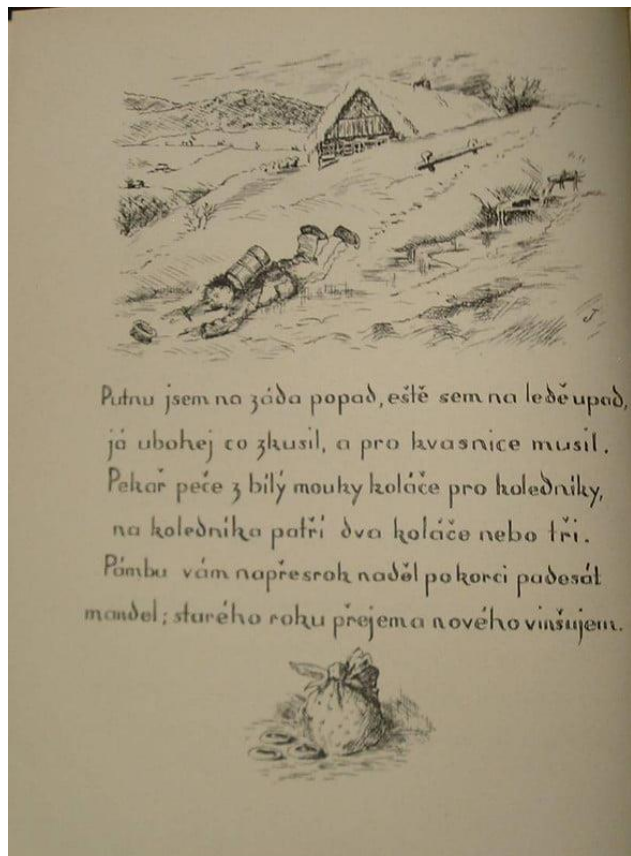 J
Putnu jsem na záda popad, eště sem na ledě upad,
já ubohej co zkusil, a pro kvasnice musil.
Pekař peče z bílý mouky koláče pro koledníky,
na koledníka patří dva koláče nebo tři.
Pámbu vám napřesrok naděl po korci padesát
mandel; starého roku přejem a nového vinšujem.